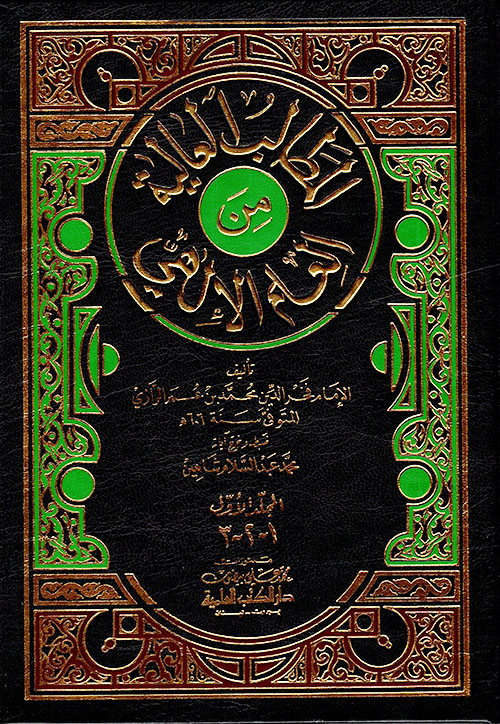 المطالب العالية
من
العلم الإلهي
تأليف
الإمام فخر الدين محمد بن عمر الرازي
المتوفى سنة ٦٠٦ هـ
ضبطه وخرج آياته
محمد عبد السلام شاهين
المجلد الأول
١-٢-٣
منشورات
محمد علي بيضون
دار الكتب العلمية
بيروت - لبنان